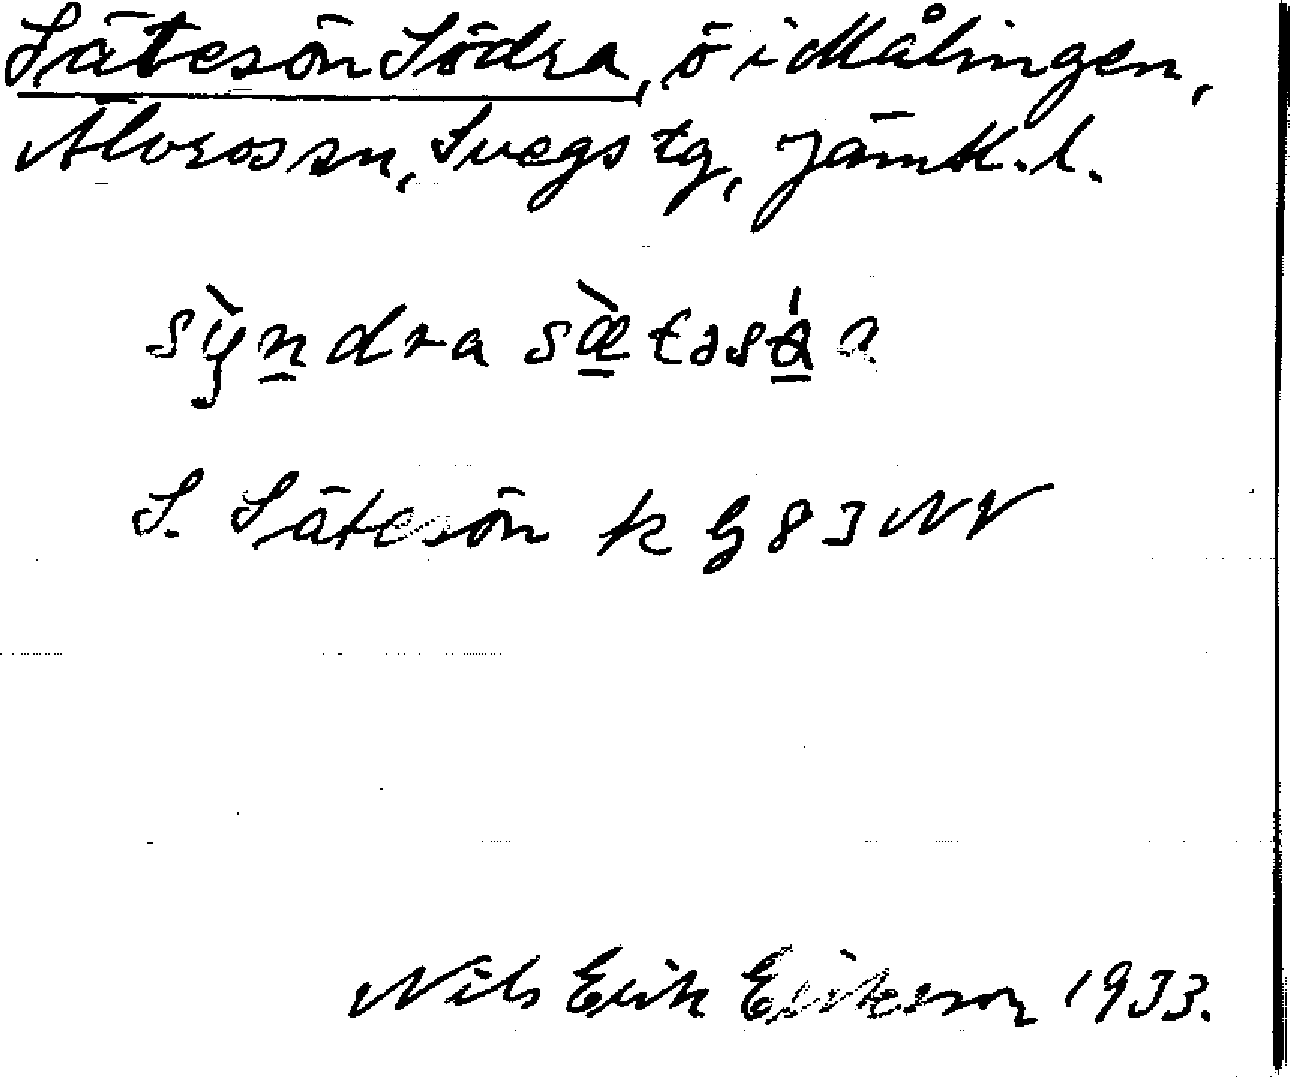 Sätesön Södra, ö i Målingen,
Älvros sn, Svegs tg, Jämtl. l.
sỳndra sæ̀təsǿn
S. Sätesön k bg 83 NV
Nils Erik Eriksson 1933.